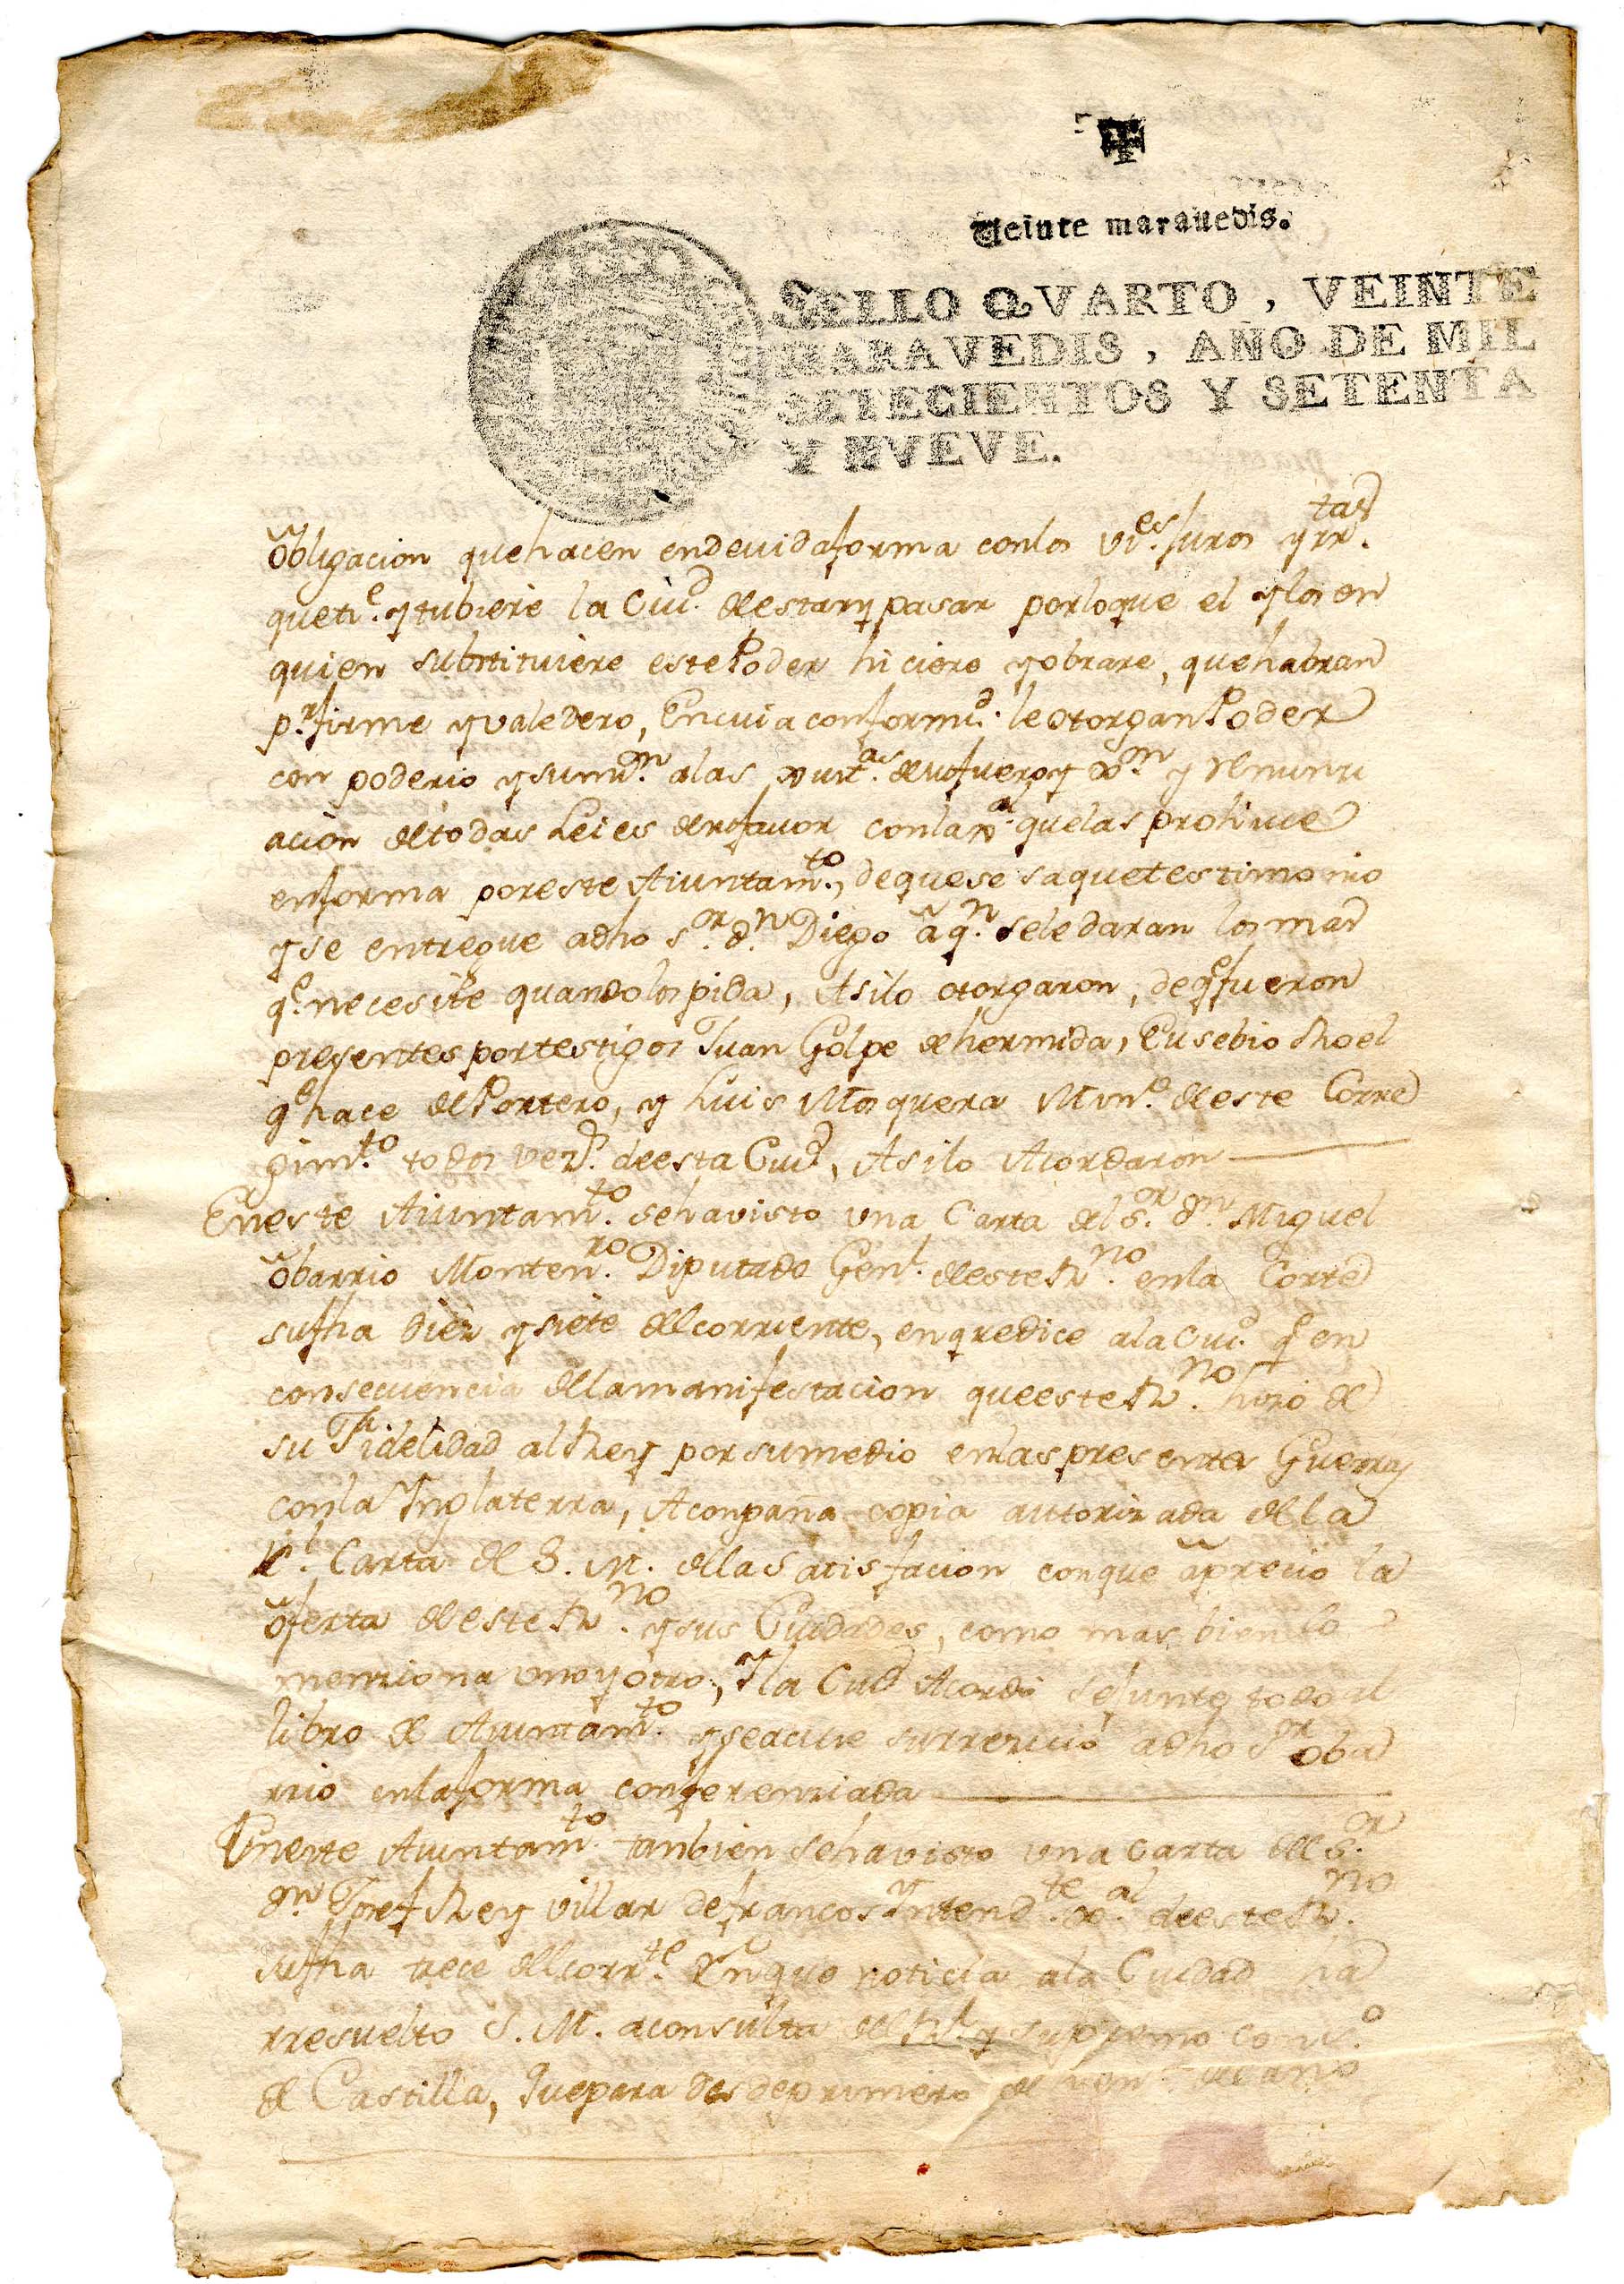 Veinte maravedis.
SELLO QVARTO, VEINTE
MARAVEDIS, AÑO DE MIL
SETECIENTOS Y SETENTA
Y NVEVE.
obligacion que hacen en devida forma con los vi.es juros y rr.tas
que ti.e y tubiere la Ciu.d de estar y pasar por lo que el y los en
quien substituiere este Poder hiciere y obrare, que habran
p.r firme y valedero, En cuia conformi.d le otorgan Poder
con poderio y sumi.on a las Just.as de su fuero y y renunci
acion de todas Leies de su favor con la que las prohive
en forma por este Aiuntam.to, de que se saque testimonio
y se entregue a dho s.or d.n Diego a q.n se le daran los mas
q.e necesite quando los pida, Asi lo otorgaron, de q.e fueron
presentes por testigos Juan Golpe de hermida, Eusebio Noel
q.e hace de Portero, y Luis Mosquera de este Corre
gim.to todos vez.s de esta Ciud, Asi lo Acordaron
En este Aiuntam.to se ha visto una Carta del s.or d.n Miguel
obarrio Monten.ro Diputado Gen.l de este R.no en la Corte
su fha diez y siete del corriente, en que dice a la Ciu.d q.e en
consecuencia de la manifestacion que este R.no hizo de
su Fidelidad al Rey por su medio en las presentes Guerras
con la Inglaterra, Aconpaña copia autorizada de la
R.l Carta de S. M. de la Satisfacion con que aprecio la
oferta de este R.no y sus Ciudades, como mas bien lo
menziona uno y otro, Y la Ciud Acordo se junte todo al
libro de Aiuntam.to y se acuse su rrezivo a dho S.or oba
rrio en la forma conferenziada
En este Aiuntam.to tanbien se ha visto una carta del s.or
d.n Josef Rey villar de francos Yntend.te de este R.no
su fha trece del corr.te En que noticia a la Ciudad ha
rresuelto S. M. a consulta del R.l y supremo cons.o
de Castilla, que para desde primero de año